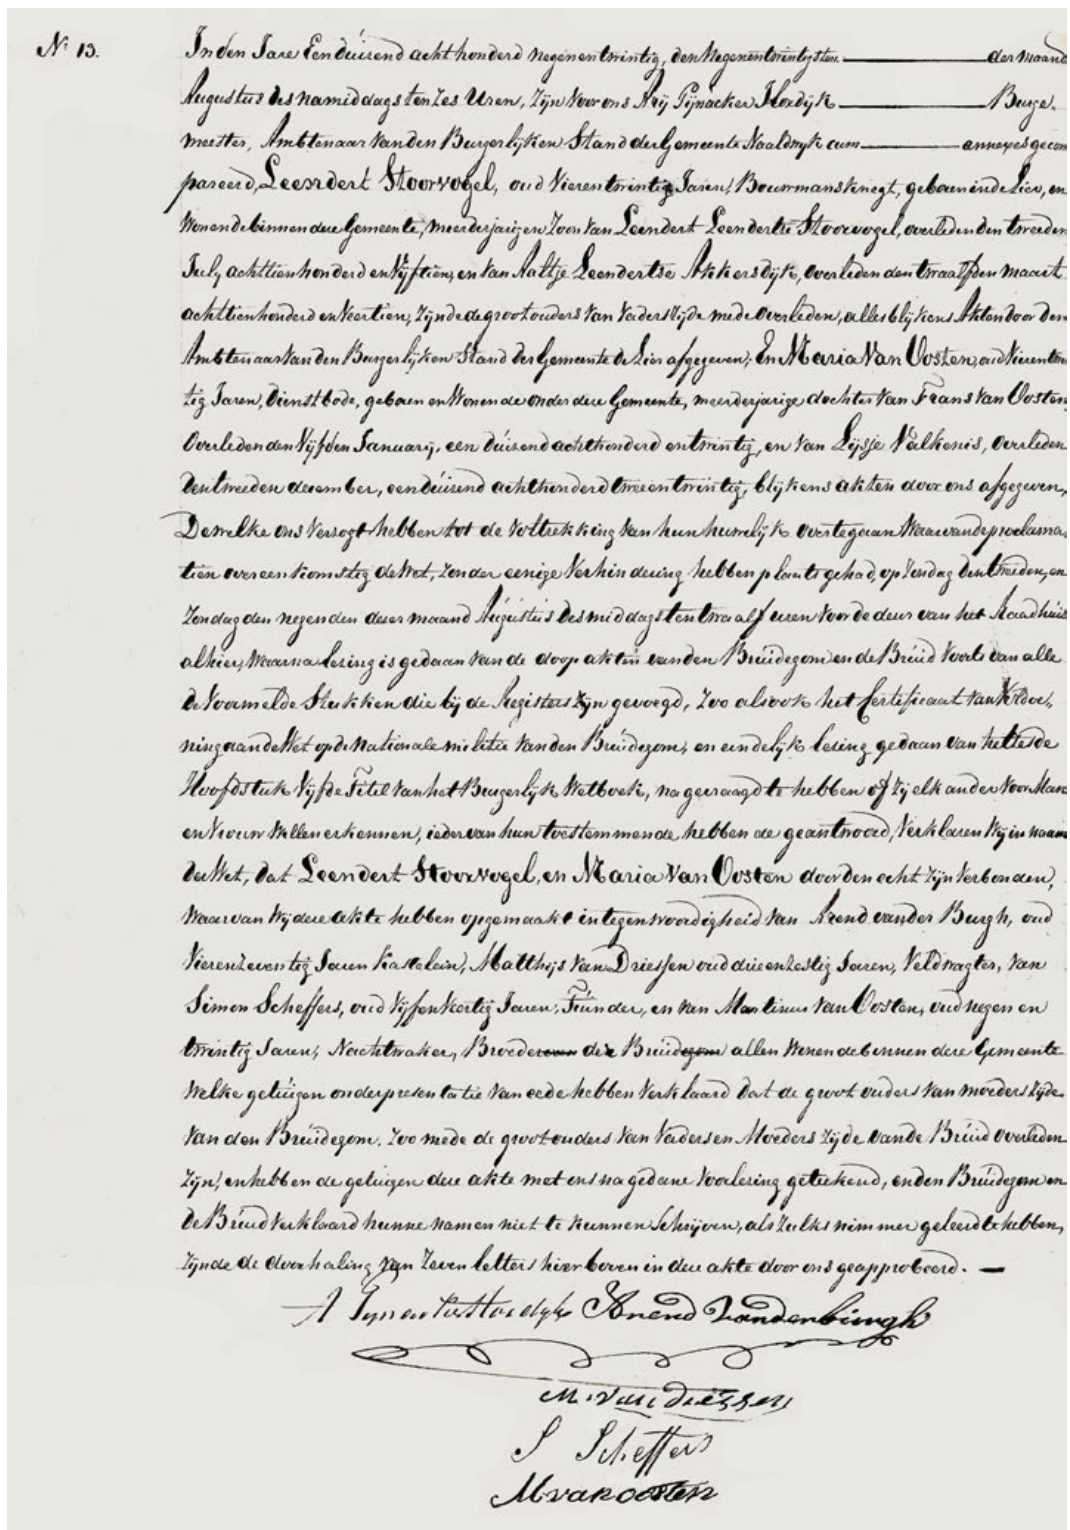 N: 13.
In den Jare Eenduizend achthonderd negenentwintig, den Negenentwintigsten der maand
Augustus des namiddags ten zes Uren, Zijn voor ons Arij Pijnacker Hordijk Burge-
meester, Ambtenaar van den Burgerlijken Stand der Gemeente Naaldwyk cum annexes gecom
pareerd, Leendert Stoorvogel, oud Vierentwintig Jaren, Bouwmansknegt, geboren in de Lier, en
Wonende binnen deze Gemeente, meerderjarigen Zoon van Leendert Leendertse Stoorvogel, overleden den tweeden
July achttienhonderd en Vijftien, en van Aaltje Leendertse Akkersdijk, overleden den twaalfden maart
achttienhonderd en Veertien, Zijnde de grootouders van Vaders zijde mede overleden, alles blijkens Akten door den
Ambtenaar van den Burgerlijken Stand der Gemeente de Lier afgegeven; En Maria Van Oosten, oud Vierentwin
tig Jaren, Dienstbode, geboren en Wonende onder deze Gemeente, meerderjarige dochter van Frans van Oosten,
Overleden den Vijfden January, een duizend achthonderd en twintig, en van Lijsje Valkenis, Overleden
den tweeden december, eenduizend achthonderd tweeentwintig, blijkens akten door ons afgegeven,
Dewelke ons Verzogt hebben tot de voltrekking van hun huwelijk over te gaan Waarvan de proclama-
tien overeenkomstig de Wet, zonder eenige Verhindering hebben plaats gehad, op Zondag den tweeden, en
Zondag den negenden dezer maand Augustus des middags ten twaalf uren voor de deur van het Raadhuis
alhier, Waarna lezing is gedaan van de doop akten van den Bruidegom en de Bruid Voorts van alle
de Voormelde Stukken die bij de Registers Zijn gevoegd, Zoo als ook het Certificaat van Voldoe,,
ning aan de Wet op de Nationale militie van den Bruidegom, en eindelijk lezing gedaan van het 
Hoofdstuk Vijfde Titel van het Burgerlijk Wetboek, na gevraagd te hebben of zij elkander voor Man
en Vrouw Willen erkennen, ieder van hun toestemmende hebben de geantwoord, Verklaren Wij in naam
der Wet, dat Leendert Stoorvogel, en Maria Van Oosten door den echt Zijn Verbonden,
Waarvan Wij deze akte hebben opgemaakt in tegenwoordigheid van Arend van der Burgh, oud
Vierenzeventig Jaren Kastelein, Matthijs van Driessen oud drieenzestig Jaren, Veldwagter, van
Simon Scheffers, oud Vijfenveertig Jaren, en van Martinus van Oosten, oud negen en
twintig Jaren, Nachtwaker, Broeder der Bruid allen Wonende binnen deze Gemeente
Welke getuigen onder presentatie van eede hebben Verklaard dat de groot ouders van moeders zijde
van den Bruidegom, Zoo mede de grootouders van Vaders en Moeders zijde van de Bruid overleden
zijn, en hebben de getuigen deze akte met ons na gedane voorlezing geteekend, en den Bruidegom en
de Bruid Verklaard hunne namen niet te kunnen Schrijven, als Zulks nimmer geleerd te hebben,
Zijnde de doorhaling van Zeven letters hier boven in deze akte door ons geapprobeerd.
A Pijnacker Hordijk Arend Vanderburgh
M. van driessen
S Scheffers
M van oosten